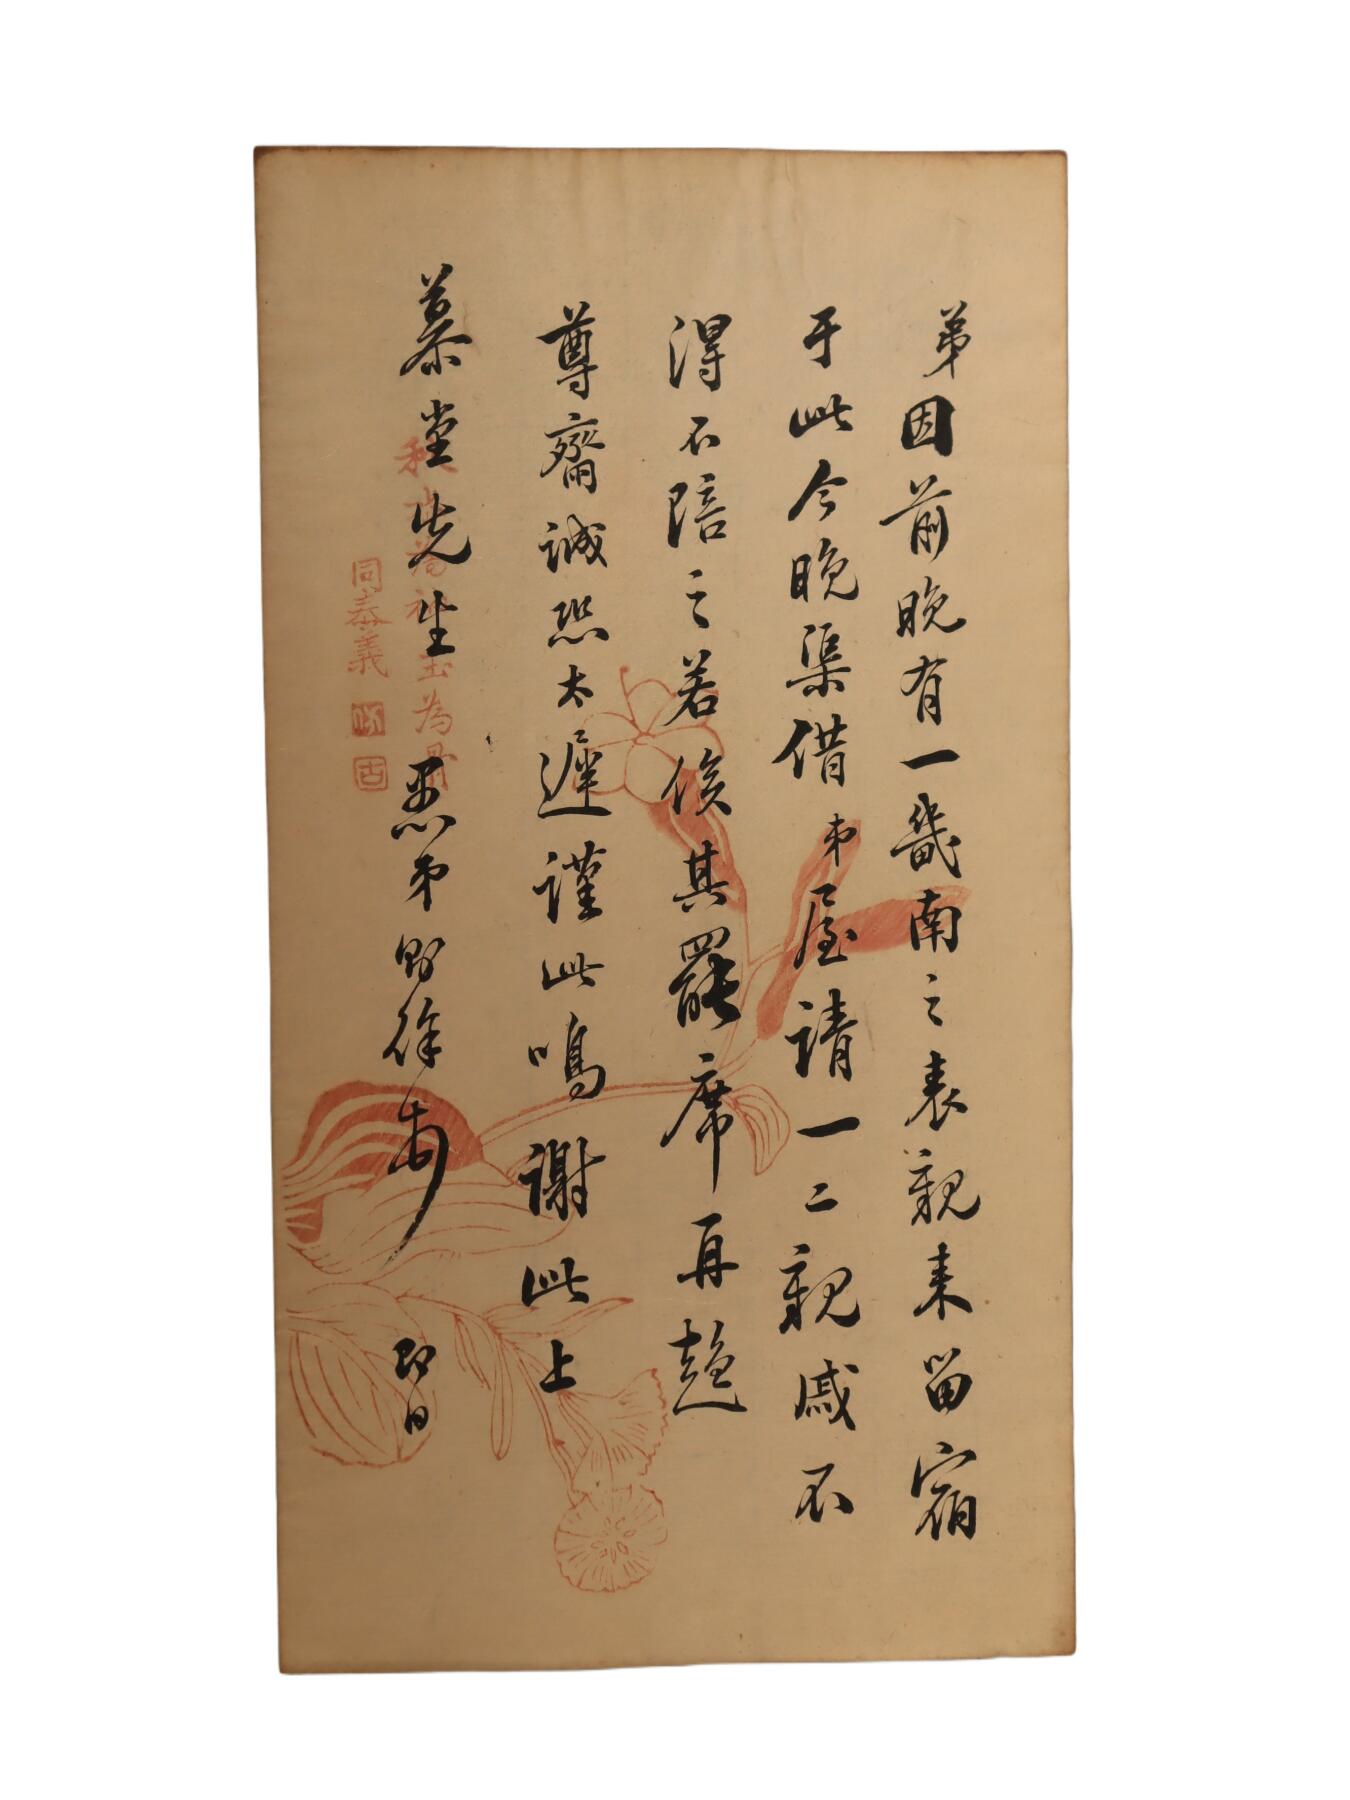 弟因前晚有一畿南之表親来留宿
于此今晚渠借弟屋請一二親戚不
得不陪之若俟其罷席再趨
尊齋誠恐太遲謹此鳴謝此上
慕堂先生 愚弟 期徐 即日
為骨
同泰義